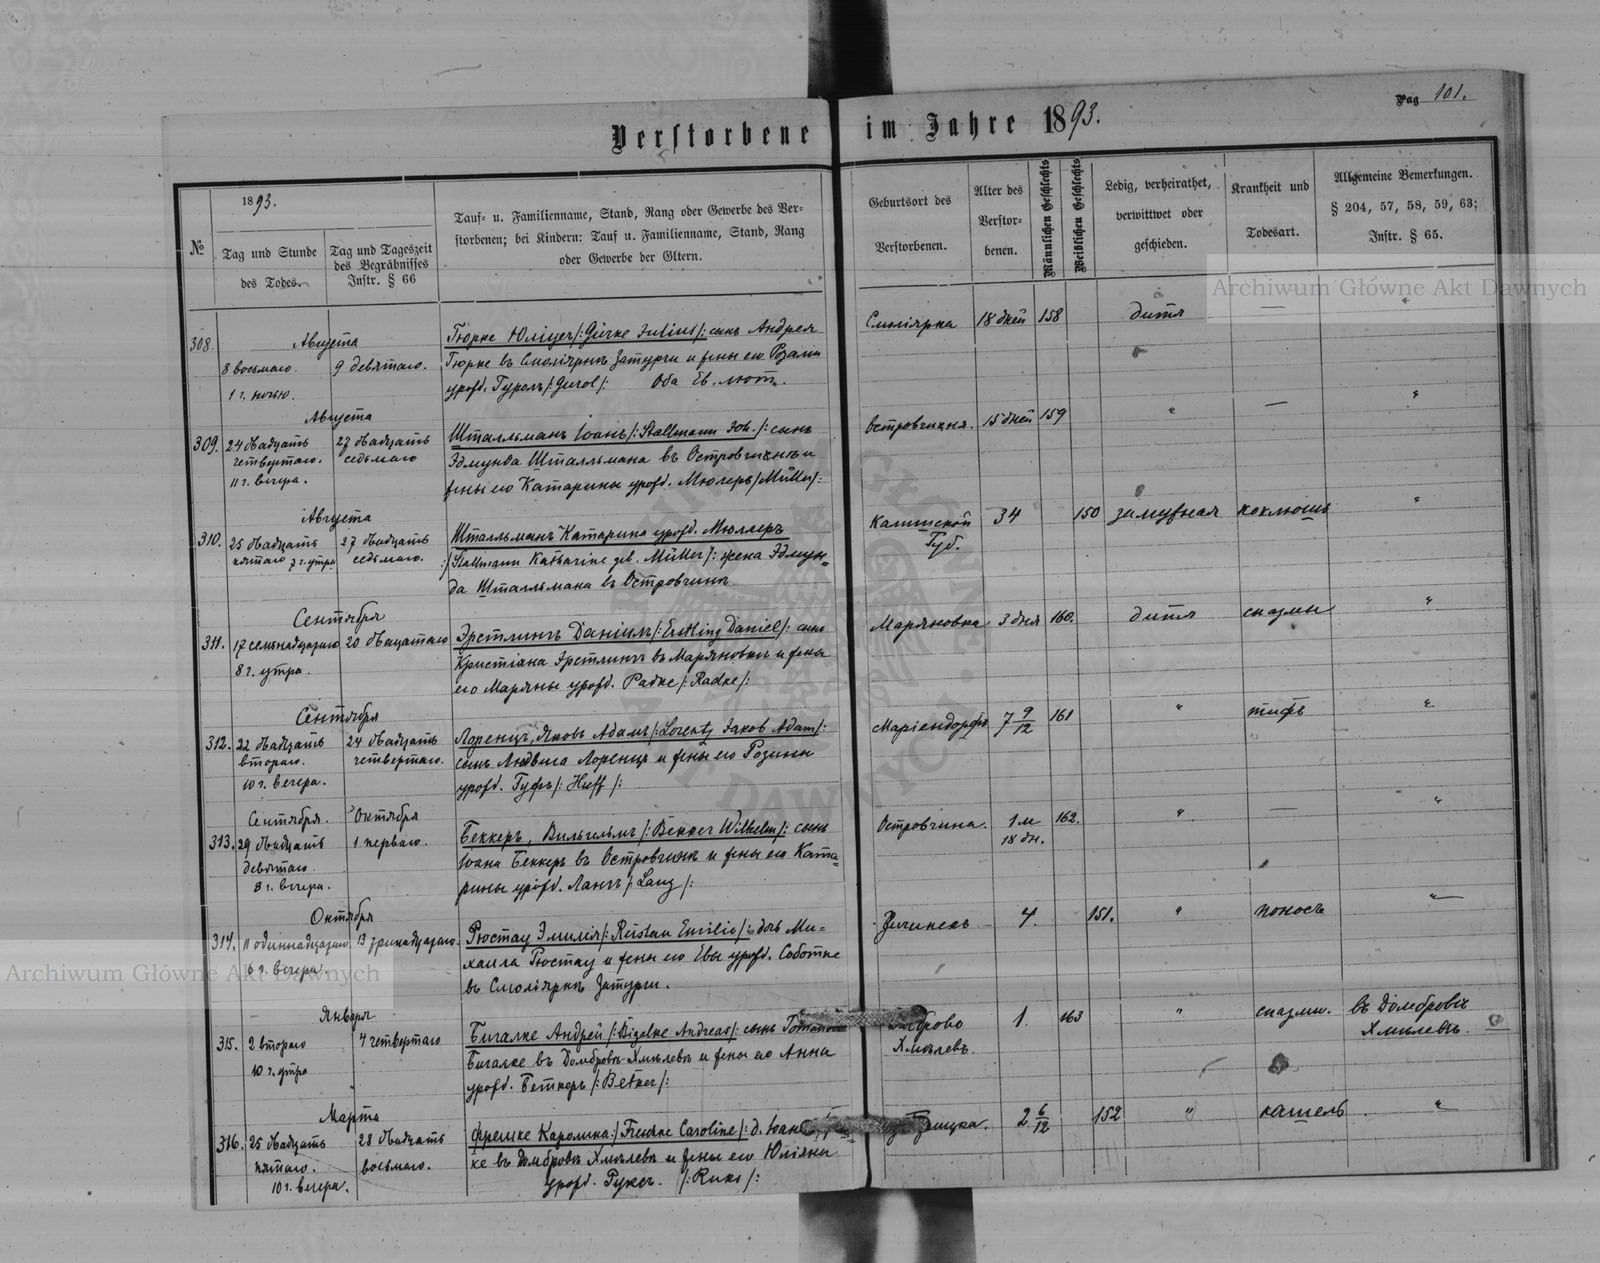 Pag 101.
Verstorbene im Jahre 1893.
1893.
№
Tag und Stunde
des Todes.
Tag und Tageszeit
des Begräbnisses
Instr. § 66
Tauf- u. Familienname, Stand, Rang oder Gewerbe des Ver-
storbenen; bei Kindern: Tauf u. Familienname, Stand, Rang
oder Gewerbe der Eltern.
Geburtsort des
Verstorbenen.
Alter des
Verstor-
benen.
Männlichen Geschlechts
Weiblichen Geschlechts
Ledig, verheirathet,
verwittwet oder
geschieden.
Krankheit und
Todesart.
Allgemeine Bemerkungen.
§ 204, 57, 58, 59, 63;
Instr. § 65.
Archiwum Główne Akt Dawnych
308.
Августа
8 восьмаго.
1 г. ночью.
9 девятаго.
Гюрке Юліусъ /: Girke Julius /: сынъ Андрея
Гюрке въ Смолярнѣ Затурцы и жены его Розаліи
урожд. Гуролъ /: Gurol /: Оба Ев. лют.
Смолярка 18 дней 158 дитя — "
309.
Августа
24 двадцать
четвертаго.
11 г. вечера.
27 двадцать
седьмаго
Штальманъ Іоанъ /: Stallmann Joh. /: сынъ
Эдмунда Штальмана въ Островчинѣ и
жены его Катарины урожд. Мюлеръ /: Müller /:
Островчизна. 15 дней 159 " — "
310.
Августа
25 двадцать
пятаго 7 г. утра
27 двадцать
седьмаго.
Штальманъ Катарина урожд. Мюллеръ
:/ Stallmann Katharine geb. Müller /: жена Эдмун=
да Штальмана въ Островчинѣ
Калишской
Губ.
34 150 замужная коклюшъ "
311.
Сентября
17 семьнадцатаго
8 г. утра.
20 двацатаго
Эрстлингъ Даніилъ /: Erstling Daniel /: сынъ
Христіана Эрстлингъ въ Маряновкѣ и жены
его Маряны урожд. Радке /: Radke /:
Маряновка. 3 дня 160. дитя спазмы "
312.
Сентября
22 двадцать
втораго.
10 г. вечера.
24 двадцать
четвертаго.
Лоренцъ, Яковъ Адамъ /: Lorentz Jakob Adam /:
сынъ Людвига Лоренцъ и жены его Розины
урожд. Гуфъ /: Huff /:
Маріендорфъ 7 9/12 161 " тифъ "
313.
Сентября. Октября
29 двадцать
девятаго
8 г. вечера.
1 перваго.
Беккеръ, Вильгельмъ /: Bekker Wilhelm /: сынъ
Іоана Беккеръ въ Островчинѣ и жены его Ката=
рины урожд. Лангъ /: Lang /:
Островчина. 1 м
18 дн.
162. " — "
314.
Октября
11 одиннадцатаго
6 г. вечера.
13 тринадцатаго.
Рюстау Эмилія /: Rüstau Emilie /: дочь Ми=
хаила Рюстау и жены его Евы урожд. Соботке
въ Смолярнѣ Затурцы.
4. 151. " поносъ "
Archiwum Główne Akt Dawnych
315.
Января
2 втораго
10 г. утра
4 четвертаго
Бигалке Андрей /: Bigalke Andreas /: сынъ
Бигалке въ Домбровѣ-Хмѣлевѣ и жены его Анны
урожд. Беткеръ /: Betker /:
Хмѣлевъ.
1. 163 " спазмы. въ Домбровѣ
Хмѣлевѣ.
316.
Марта
25 двадцать
пятаго.
10 г. вечера.
28 двадцать
восьмаго.
Фремке Каролина :/ Fremke Caroline /: д.
ке въ Домбровѣ Хмѣлевѣ и жены его Юліяны
урожд. Руксъ. /: Ruks /:
2 6/12 152 " кашель. "